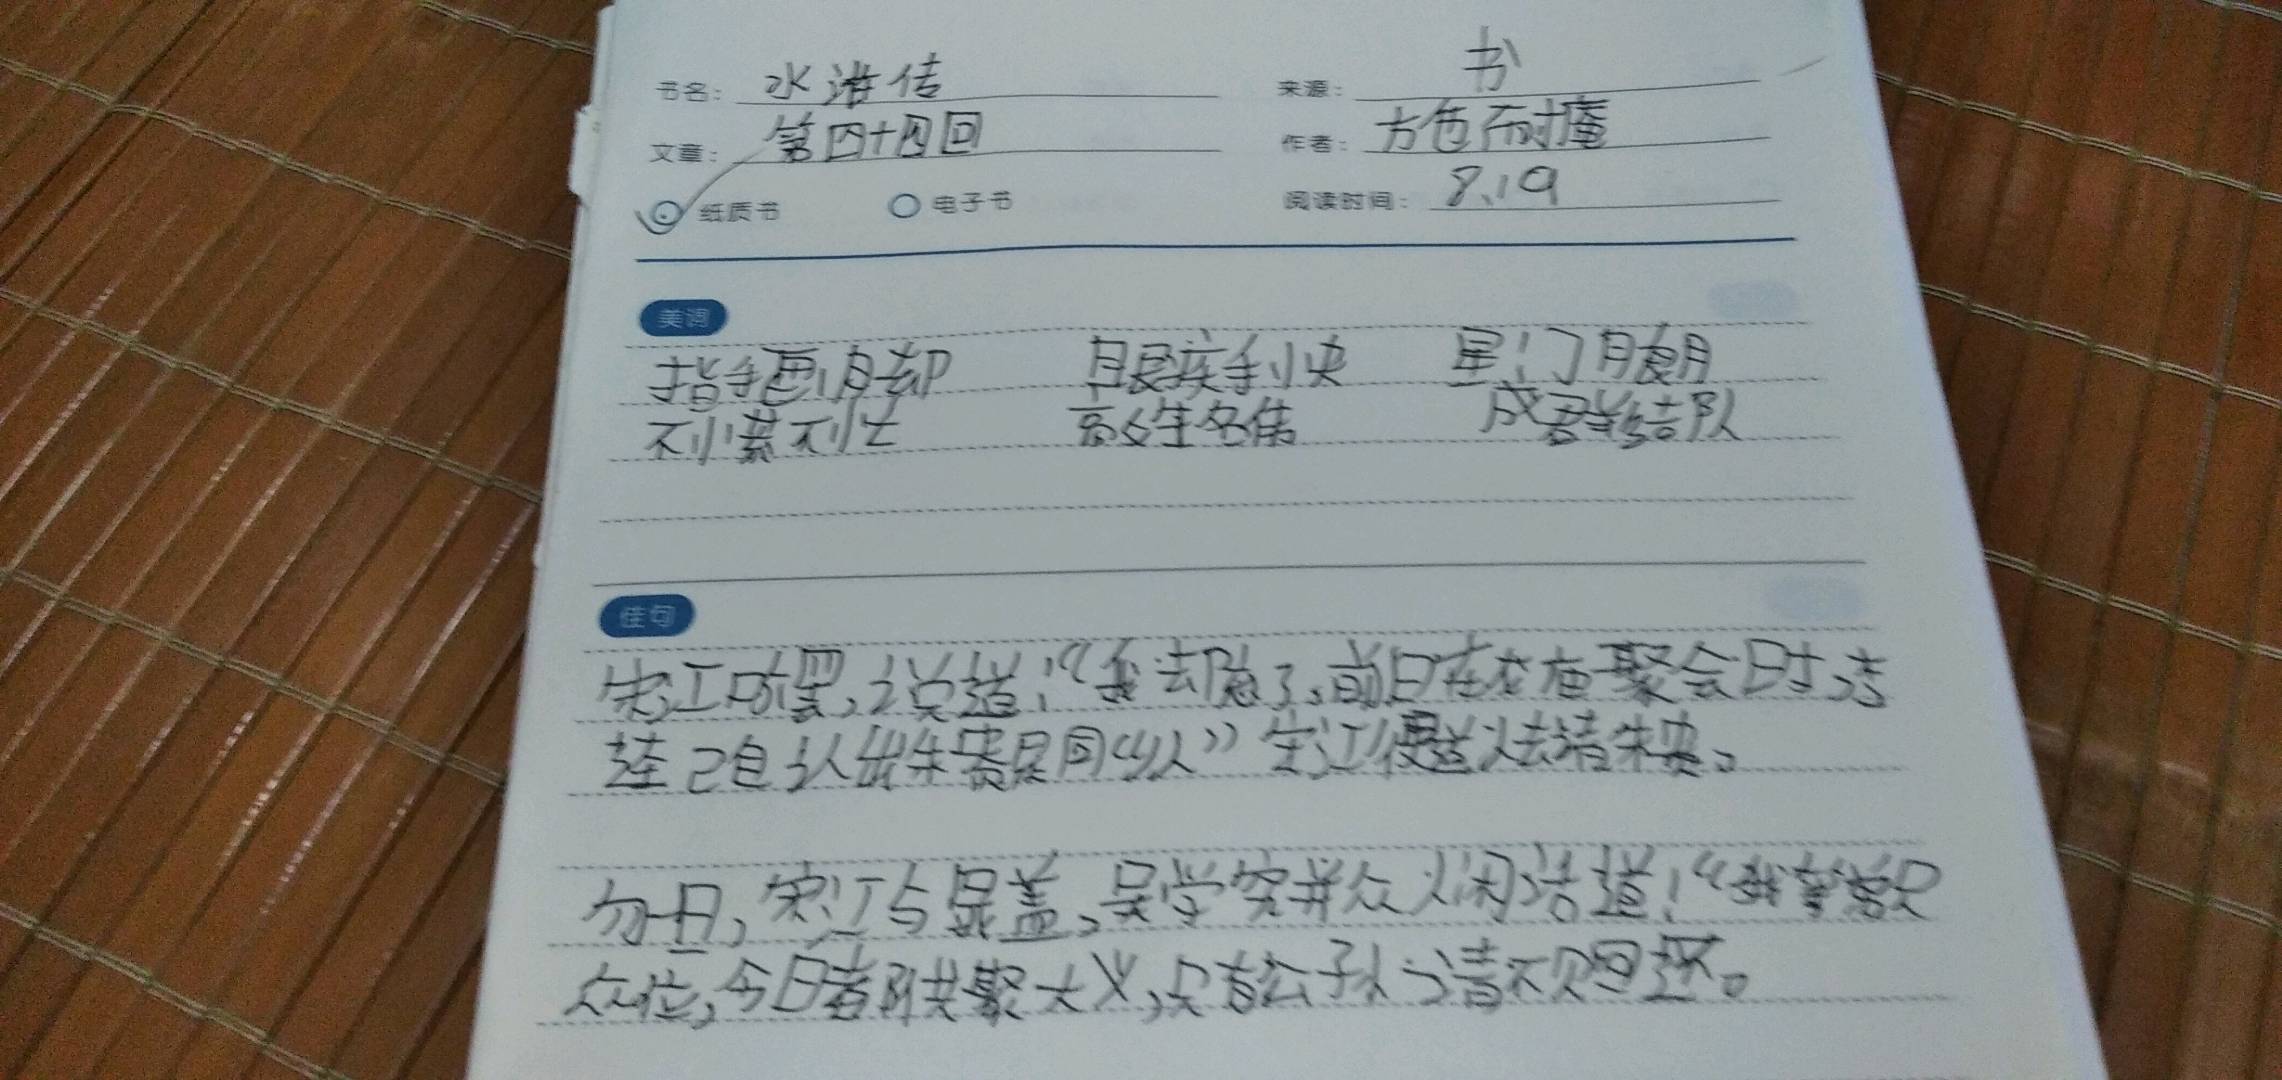 书名： 水浒传 来源： 书
文章： 第四十四回 作者： 施耐庵
纸质书 电子书 阅读时间： 8.19
美词
指手画脚 眼疾手快 星门月朗
不慌不忙 高姓名伟 成群结队
佳句
宋江听罢，说道：“我去隐了，前日在衣庙聚会时，
已自认出朱贵是同乡人”宋江便道去请朱贵。
勿日，宋江与晁盖，吴学究并众人闲话道：“我等弟兄
众位，今日都共聚大义，只有公孙 请不见回还。